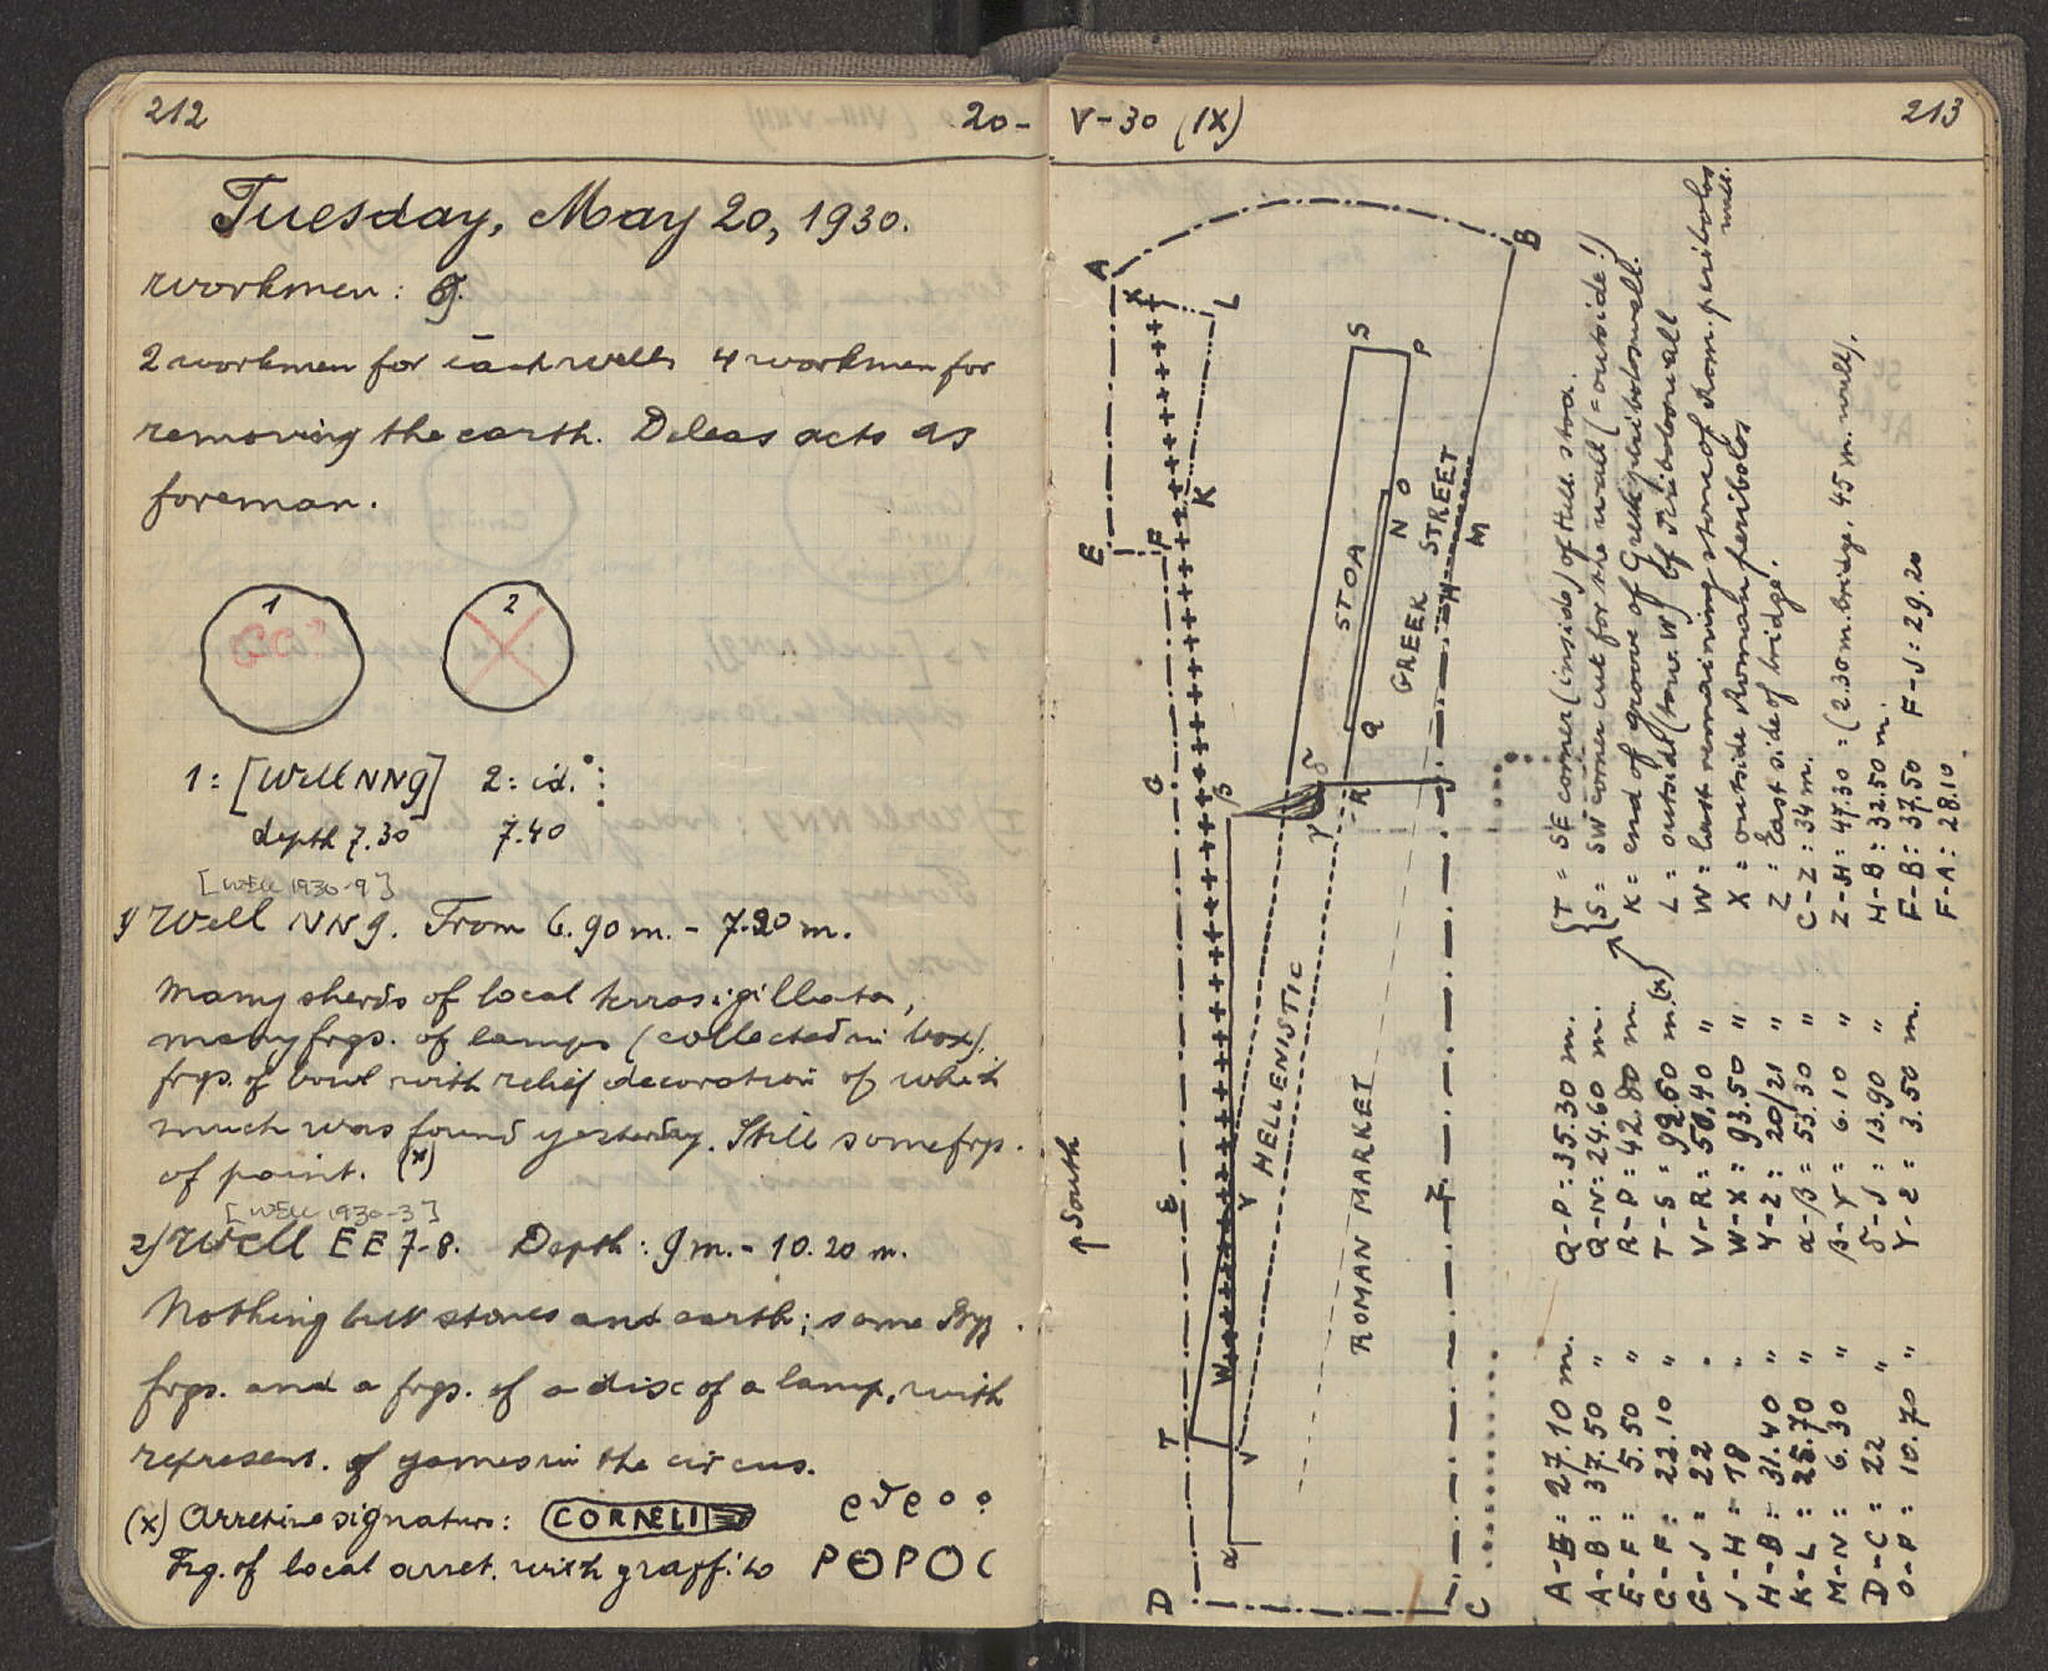 212
20-
Tuesday, May 20, 1930.
Workmen:
2 workmen for each well 4 workmen for
removing the earth. Deleas acts as
foreman.
1
2
1 = [Well NN9] 2 = id.
depth 7.30 7.40
[WELL 1930-9]
1) Well NN9. From 6.90 m. - 7.30 m.
Many sherds of local terrasigillata,
many frgs. of lamps (collected in box).
frgs. of bowl with relief decoration of which
much was found yesterday. Still some frgs.
of paint. (x)
[WELL 1930-3]
2) Well EE 7-8. Depth: 9 m. - 10.20 m.
Nothing but stones and earth; some Byz.
frgs. and a frgs. of a disc of a lamp, with
represent. of games in the circus.
(x) Arretine signature: CORNELI
Frg. of local arret. with graffito
V-30 (IX)
213
A
B
X
L
S
P
K
O
N
E
F
M
H
STOA
GREEK STREET
Q
G
β
δ
γ
R
J
HELLENISTIC
ROMAN MARKET
↑ South
Y
Z
W
T
V
α
D
C
A-E = 27.10 m.
A-B = 37.50 "
E-F = 5.50 "
G-F = 22.10 "
G-J = 22 "
J-H = 18 "
H-B = 31.40 "
K-L = 25.70 "
M-N = 6.30 "
D-C = 22 "
O-P = 10.70 "
Q-P = 35.30 m.
Q-N = 24.60 m.
R-P = 42.80 m.
T-S = 92.60 m. (x)
V-R = 50.40 "
W-X = 93.50 "
Y-Z = 20/21 "
α-β = 53.30 "
β-γ = 6.10 "
δ-J = 13.90 "
γ-ε = 3.50 m.
T = SE corner (inside) of Hell. stoa.
S = SW corner cut for the wall (= outside!)
K = end of groove of Greek peribolos wall.
L = outside (tow. W) of Peribolos wall
W = last remaining stone of Rom. peribolos wall.
X = outside Roman peribolos
Z = East side of bridge.
C-Z = 34 m.
Z-H = 47.30 = (2.30 m. bridge, 45 m. wall).
H-B = 32.50 m.
F-B = 37.50 F-J = 29.20
F-A = 28.10